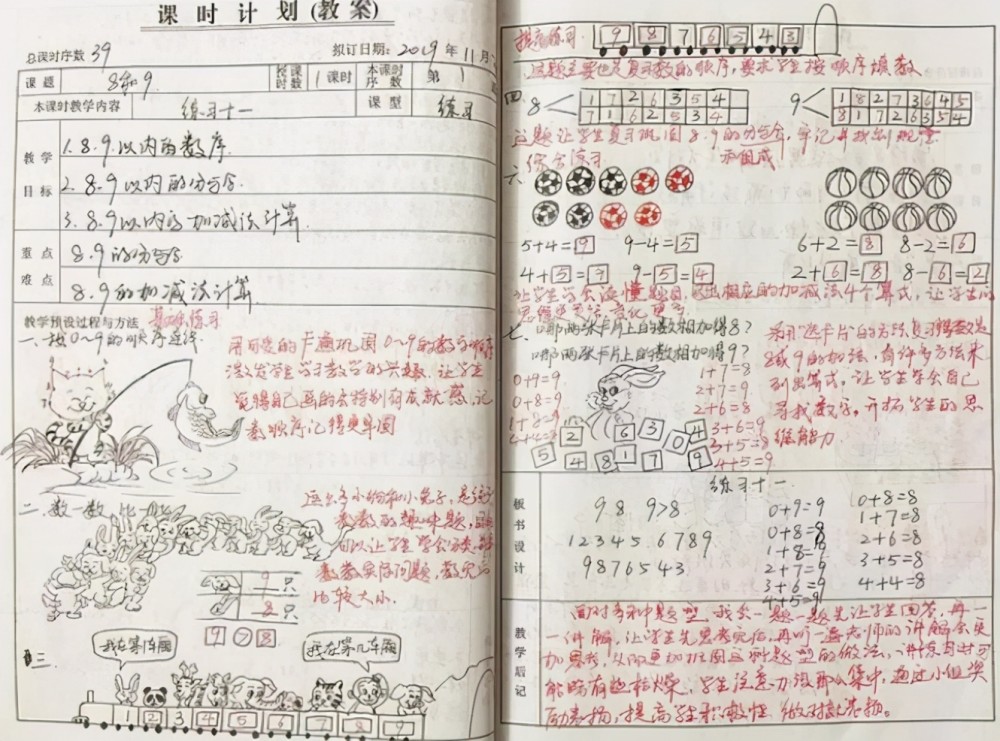 课时计划(教案)
总课时序数 39 拟订日期：2019年11月
课题 8和9 授课时数 1课时 本课时序数 第1
本课时教学内容 练习十一 课型 练习
教学目标
1. 8、9以内的数序.
2. 8、9以内的分与合.
3. 8、9以内的加减法计算.
重点 8、9的分与合
难点 8、9的加减法计算.
教学预设过程与方法 基础练习
一、找0～9的顺序连线.
用可爱的卡通巩固0～9的数的顺序
激发学生学习数学的兴趣，让学生
觉得自己画的会特别有成就感，记
数顺序记得更牢固
二、数一数，比一比
数数的趣味题，
可以让学生学会分类，
数数实际问题，数完后
比较大小.
9只
8只
9>8
三.
我在第1车厢
我在第几车厢
1 2 3 4 5 6 7 8 9
提高练习.
9 8 7 6 5 4 3
这题主要也是复习数的顺序，要求学生按顺序填数
四. 8 1 7 2 6 3 5 4
7 1 6 2 5 3 4
9 1 8 2 7 3 6 4 5
8 1 7 2 6 3 5 4
这题让学生复习巩固8.9的分与合，牢记并找到规律
和组成
综合练习
六.
5+4=9 9-4=5 6+2=8 8-2=6
4+5=9 9-5=4 2+6=8 8-6=2
让学生学会读懂题目，写出相应的加减法4个算式，让学生的
七. 哪两张卡片上的数相加得8？
哪两张卡片上的数相加得9？
0+9=9
0+8=8
1+8=9
4+4=8
1+7=8
2+7=9
2+6=8
3+6=9
3+5=8
4+5=9
2 6 3 4 0
5 4 8 1 7 9
采用“选卡片”的方法复习得数是
8或9的加法，有许多方法来
列出算式，让学生学会自己
寻找数字，开拓学生的思
维能力.
板书设计
练习十一
9 8 9>8
1 2 3 4 5 6 7 8 9
9 8 7 6 5 4 3
0+9=9
0+8=8
1+8=9
2+7=9
3+6=9
4+5=9
0+8=8
1+7=8
2+6=8
3+5=8
4+4=8
教学后记
面对多种题型，我会一题一题先让学生回答，再一
一讲解，让学生先思考完后，再听一遍老师的讲解会更
加思考，从而更加巩固这种题型的做法，讲练习时可
能略有些枯燥，学生注意力没那么集中，通过小组奖
励表扬，提高学生积极性，做对就表扬。